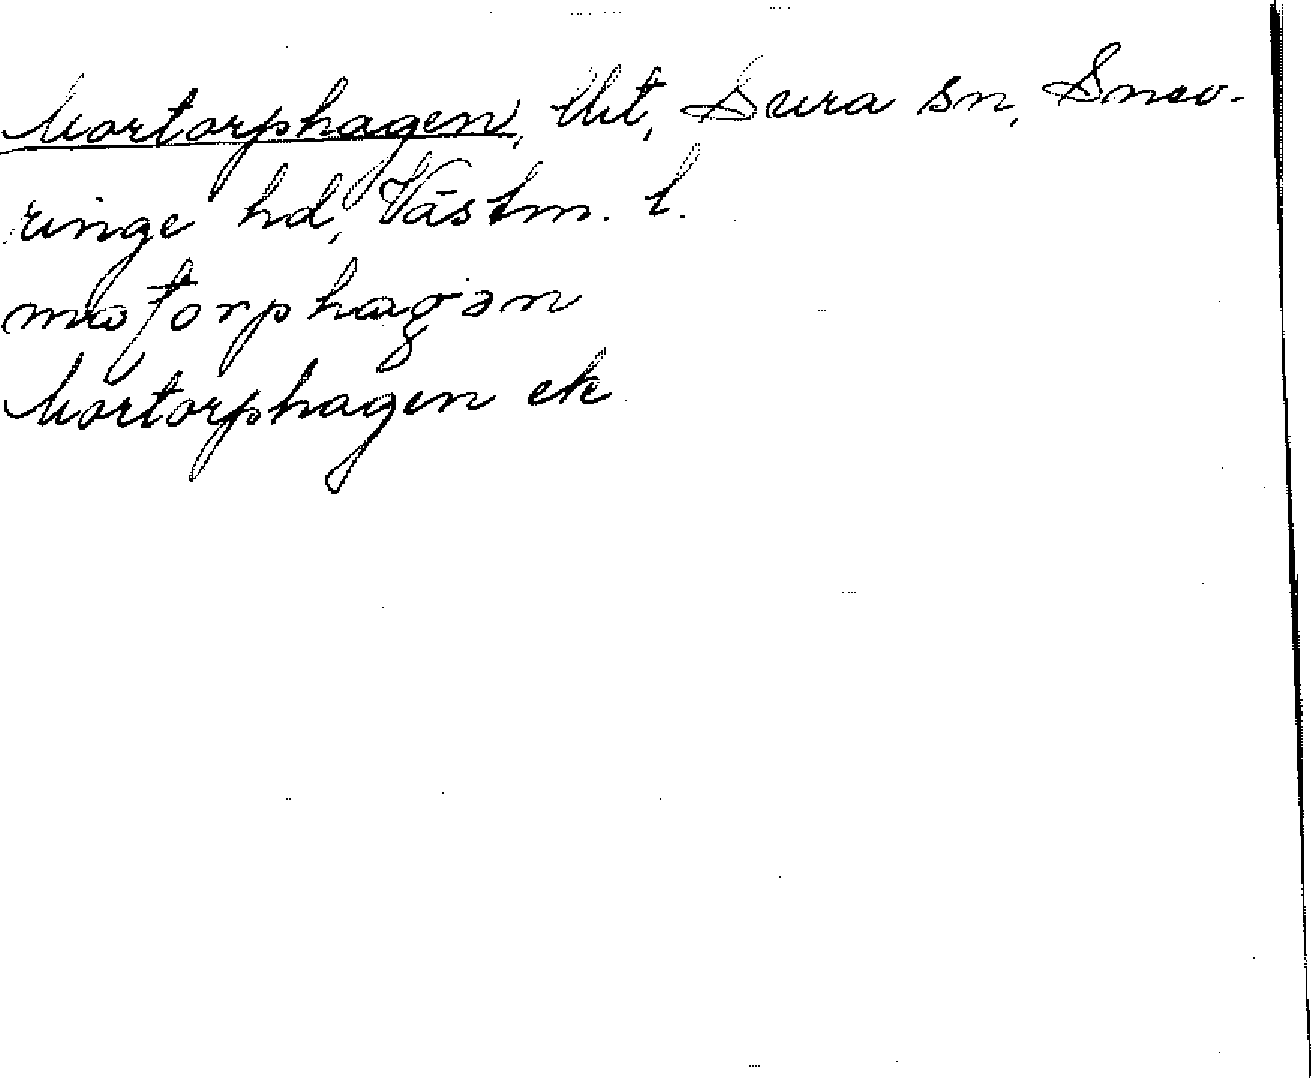 Mortorphagen, Sura sn, Snev-
ringe hd, Västm. l.
moʈorphagən
Mortorphagen ek